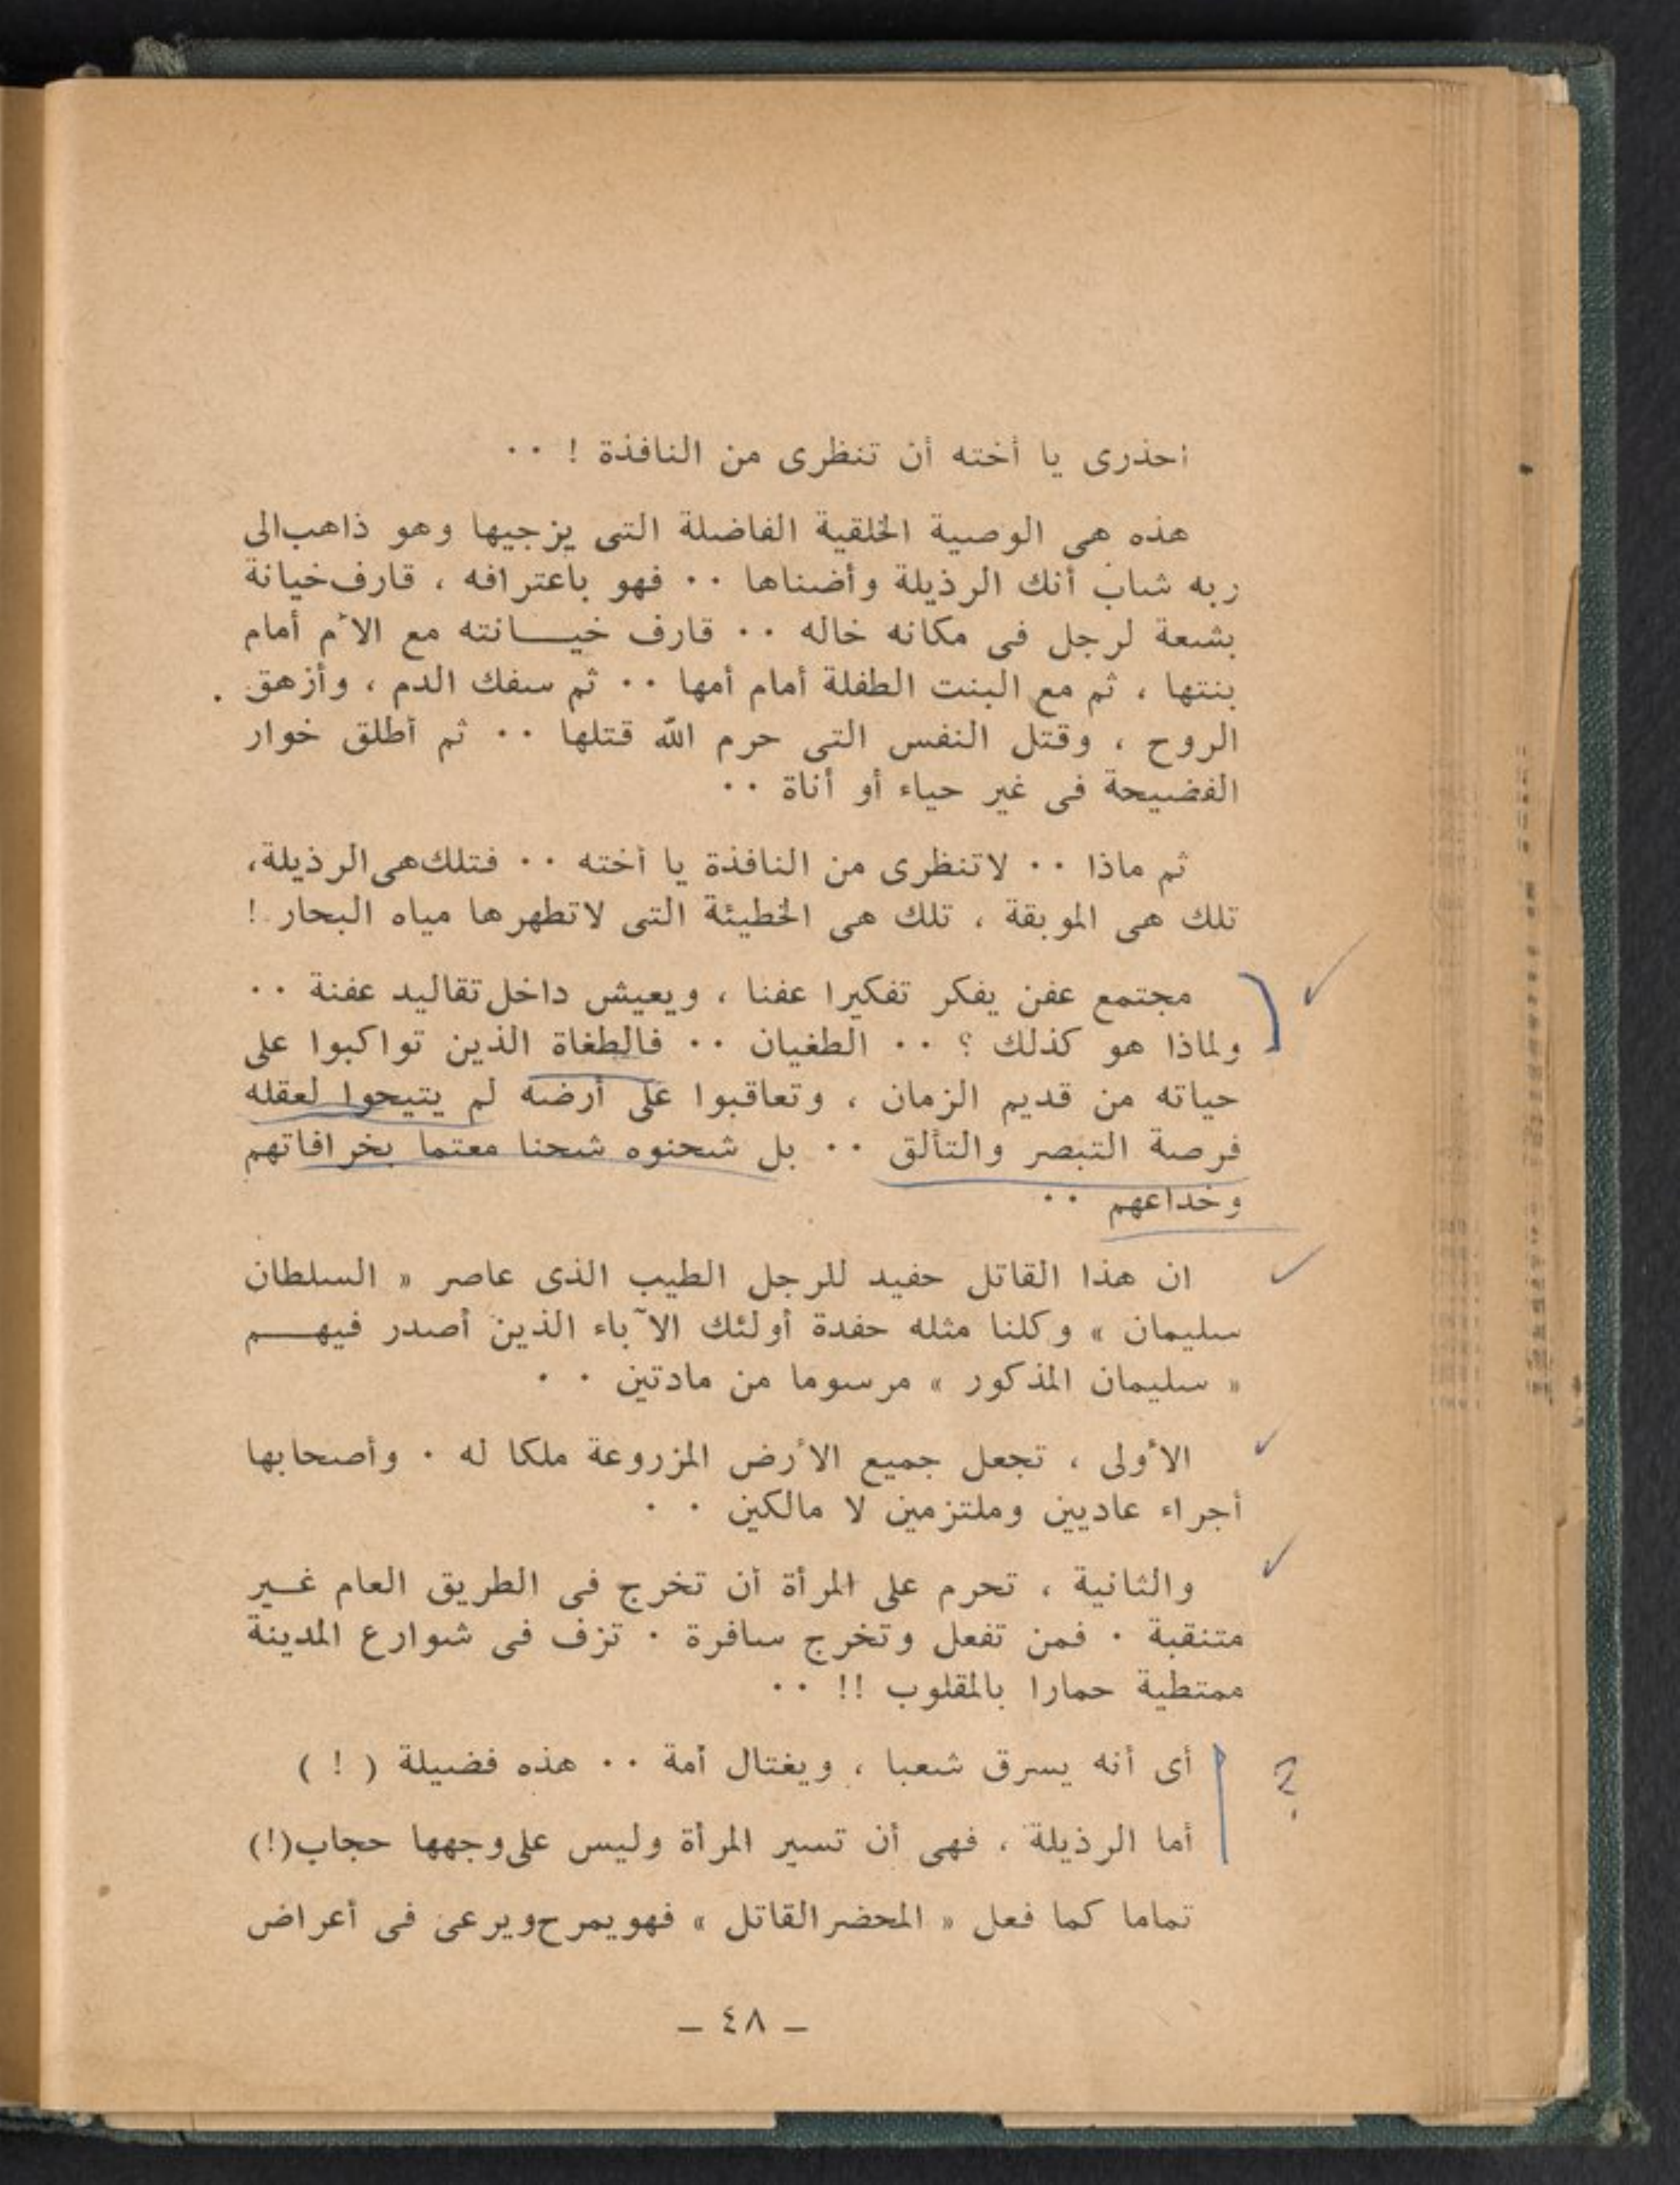 احذرى يا أخته أن تنظرى من النافذة ! ٠٠
هذه هى الوصية الخلقية الفاضلة التى يزجيها وهو ذاهب الى
ربه شاب أنك الرذيلة وأضناها ٠٠ فهو باعترافه ، قارف خيانة
بشعة لرجل فى مكانه خاله ٠٠ قارف خيـــانته مع الأم أمام
بنتها ، ثم مع البنت الطفلة أمام أمها ٠٠ ثم سفك الدم ، وأزهق
الروح ، وقتل النفس التى حرم الله قتلها ٠٠ ثم أطلق خوار
الفضيحة فى غير حياء أو أناة ٠٠
ثم ماذا ٠٠ لاتنظرى من النافذة يا أخته ٠٠ فتلك هى الرذيلة،
تلك هى الموبقة ، تلك هى الخطيئة التى لاتطهرها مياه البحار !
مجتمع عفن يفكر تفكيرا عفنا ، ويعيش داخل تقاليد عفنة ٠٠
ولماذا هو كذلك ؟ ٠٠ الطغيان ٠٠ فالطغاة الذين تواكبوا على
حياته من قديم الزمان ، وتعاقبوا على أرضه لم يتيحوا لعقله
فرصة التبصر والتألق ٠٠ بل شحنوه شحنا معتما بخرافاتهم
وخداعهم ٠٠
ان هذا القاتل حفيد للرجل الطيب الذى عاصر « السلطان
سليمان » وكلنا مثله حفدة أولئك الآباء الذين أصدر فيهـــم
« سليمان المذكور » مرسوما من مادتين ٠ ٠
الأولى ، تجعل جميع الأرض المزروعة ملكا له ٠ وأصحابها
أجراء عاديين وملتزمين لا مالكين ٠ ٠
والثانية ، تحرم على المرأة أن تخرج فى الطريق العام غـــير
متنقبة ٠ فمن تفعل وتخرج سافرة ٠ تزف فى شوارع المدينة
ممتطية حمارا بالمقلوب !! ٠٠
أى أنه يسرق شعبا ، ويغتال أمة ٠٠ هذه فضيلة ( ! )
؟
أما الرذيلة ، فهى أن تسير المرأة وليس على وجهها حجاب (!)
تماما كما فعل « المحضر القاتل » فهو يمرح ويرعى فى أعراض
— ٤٨ —